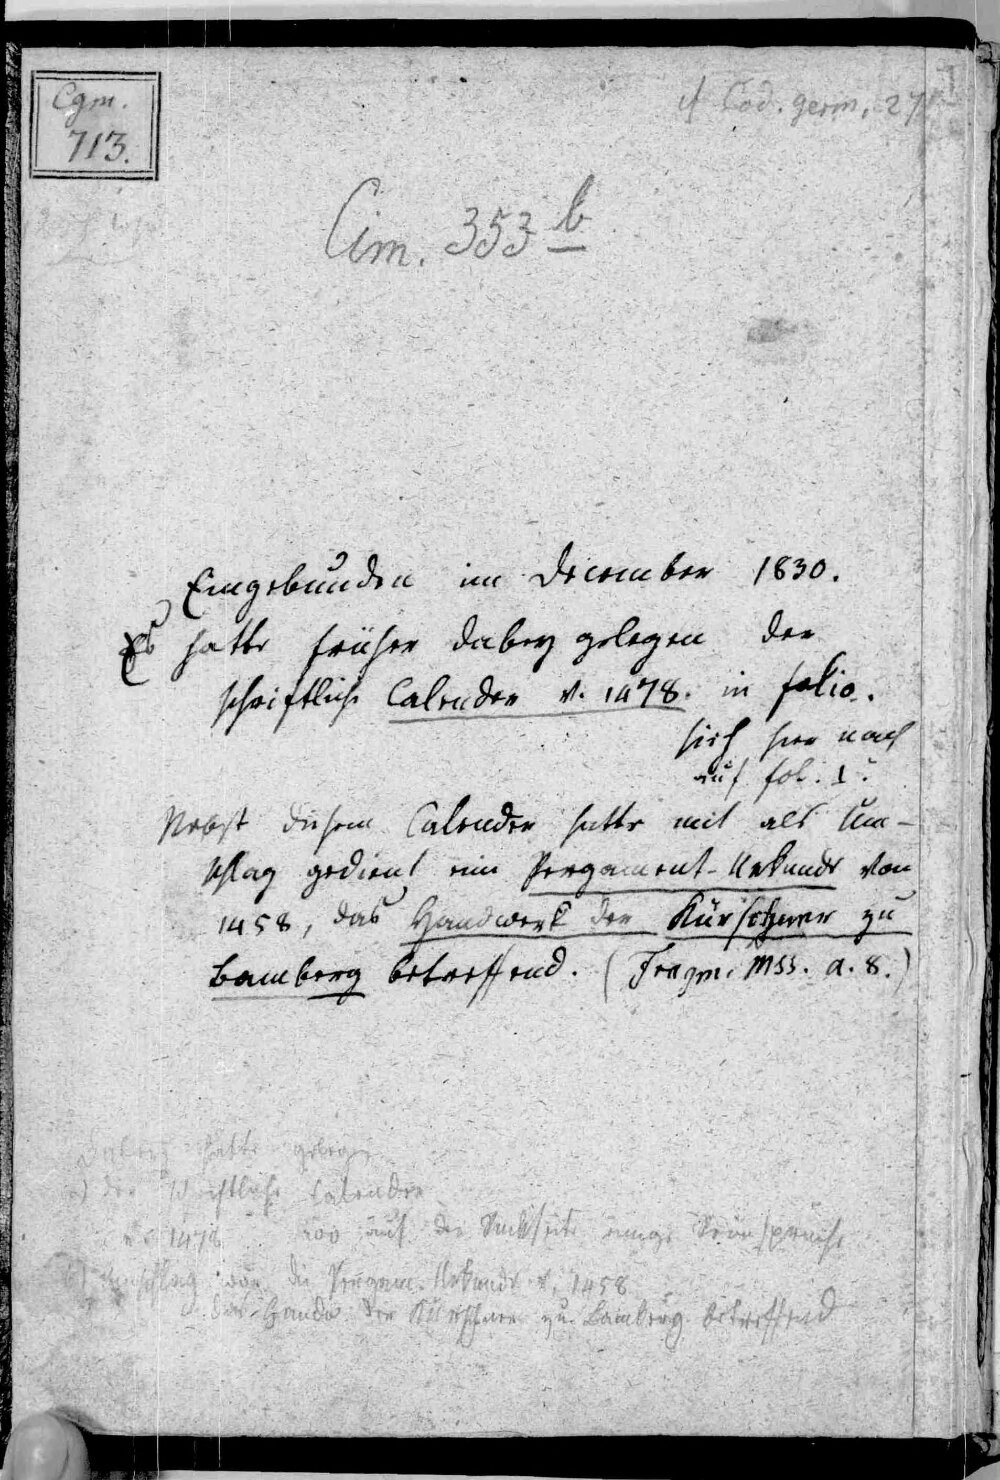 Cgm.
713.
cf Cod. germ. 27
Cim. 353 b
Eingebunden im December 1830.
Es hatte früher dabey gelegen der
schriftliche Calender v. 1478. in folio.
sieh hernach
auf fol. 1.
Nebst diesem Calender hatte mit als Um-
schlag gedient eine Pergament-Urkunde von
1458, das Handwerk der Kürschner zu
Bamberg betreffend. (Fragm. Mss. a. 8.)
Dabey hatte gelegen
a) der schriftliche Calender
v. 1478 wo auf der Rückseite einige Sprüche
b) Umschlag war die Pergam. Urkunde v. 1458
das Handw. der Kürschner zu Bamberg betreffend